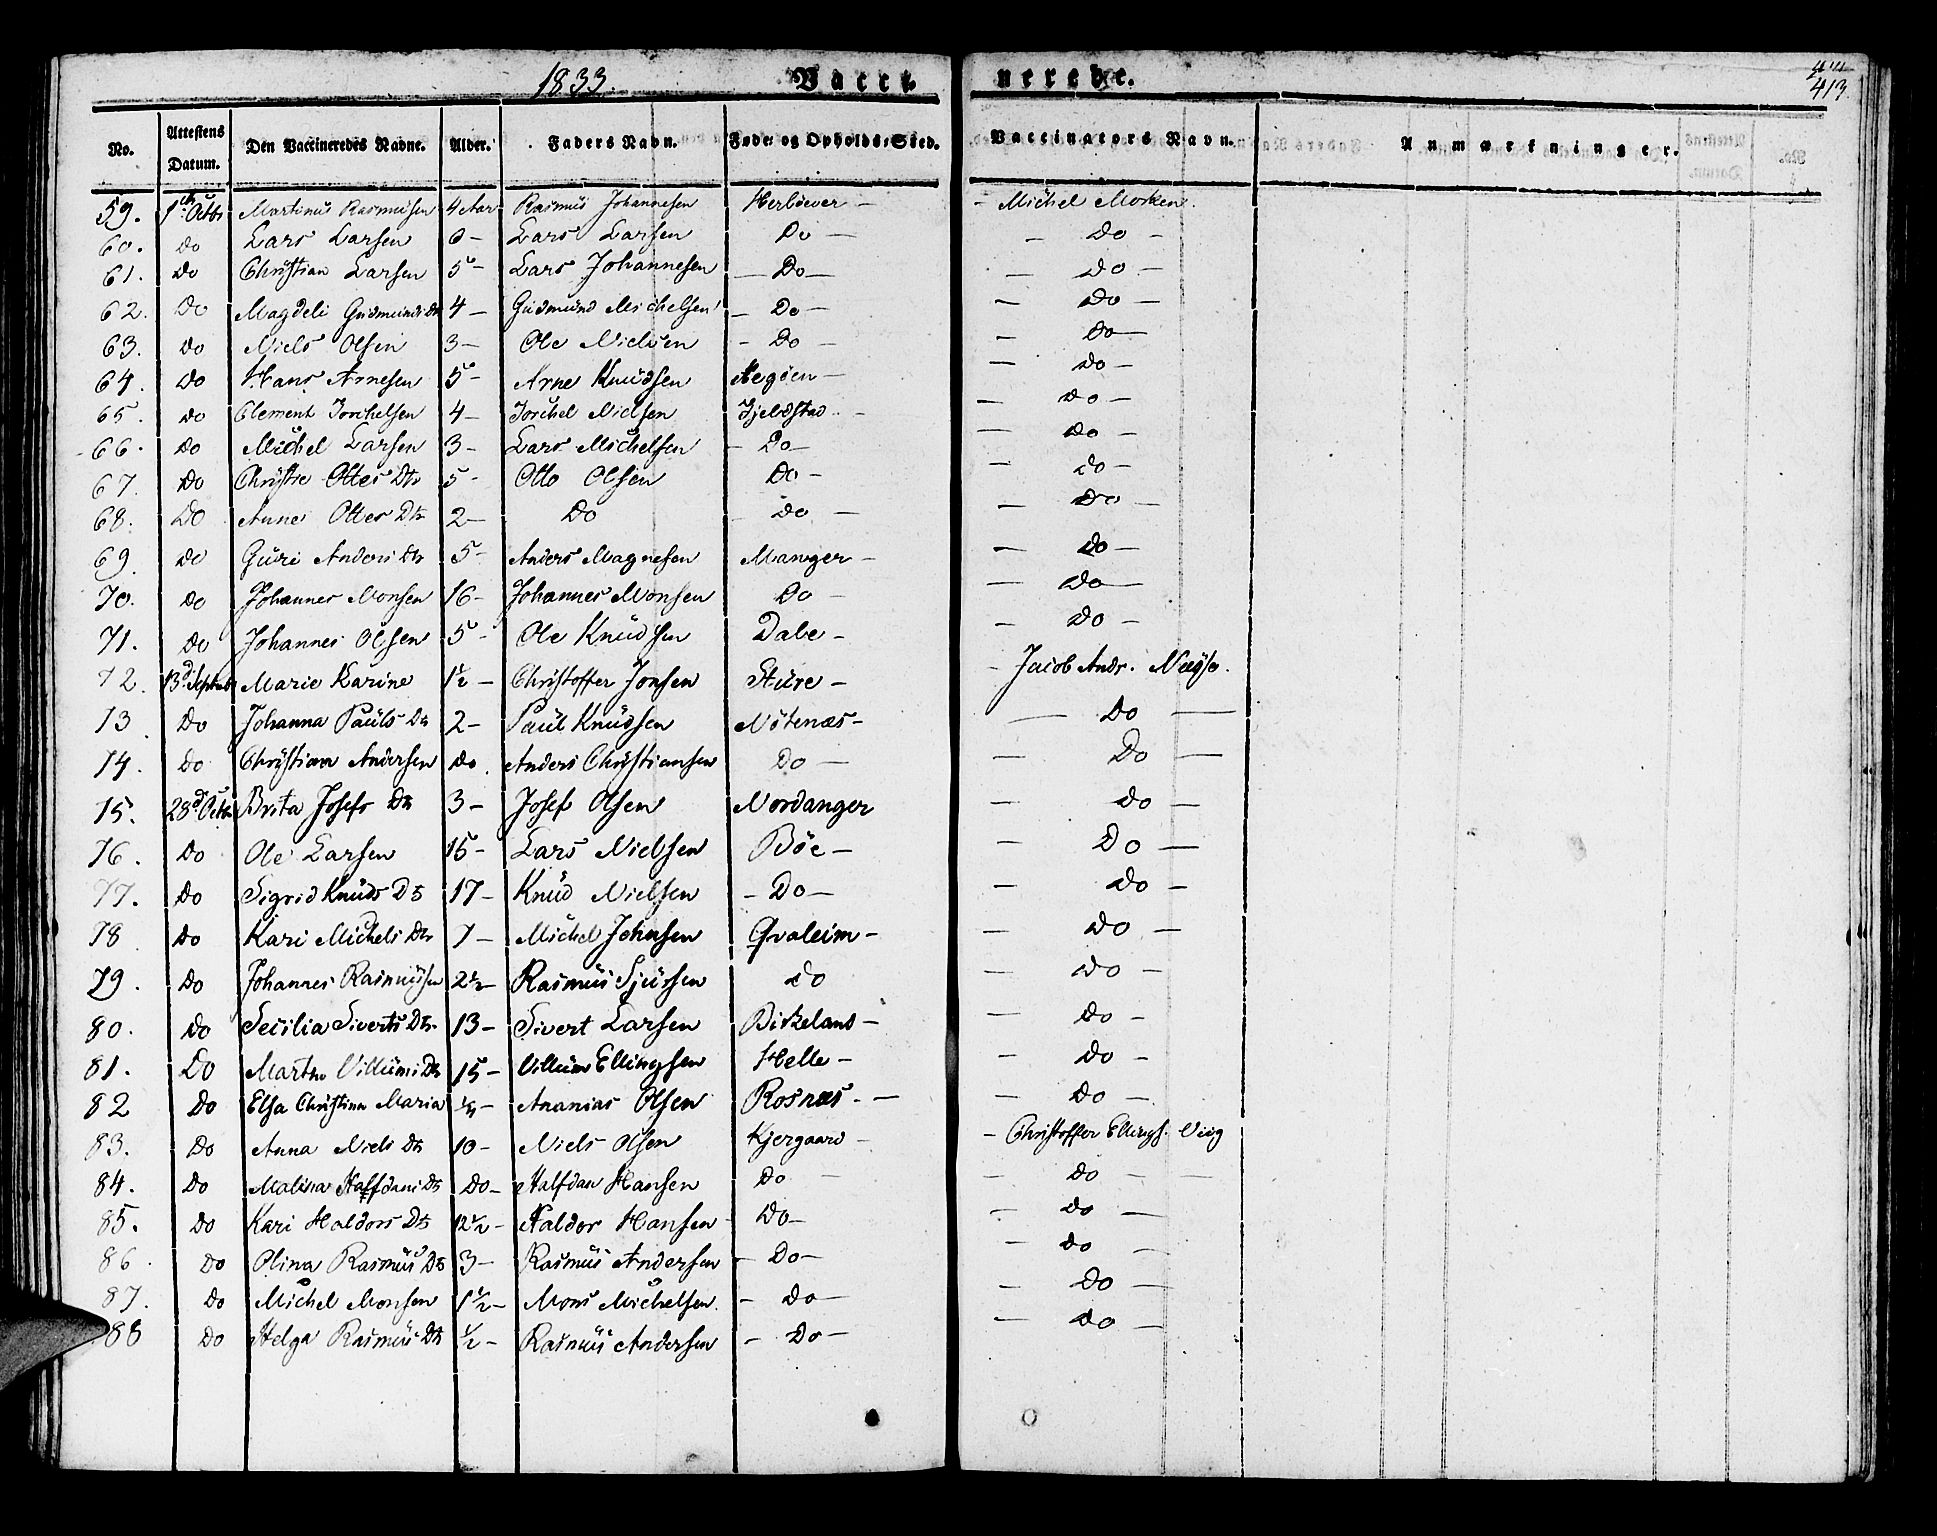 1833. Vaccinerede. 413.
No. Attestens Datum. Den Vaccineredes Navne. Alder. Faders Navn. Føde- og Opholds-Sted. Vaccinators Navn. Anmærkninger.
59. 1ste Octbr Martinus Rasmussen 4 Aar Rasmus Johannesen Herløever - Michel Morken.
60. Do Lars Larsen 6 - Lars Larsen Do - - Do -
61. Do Christian Larsen 5 - Lars Johannesen - Do - - Do -
62. Do Magdeli Gudmunds Dtr 4 - Gudmund Michelsen - Do - - Do -
63. Do Niels Olsen 3 - Ole Nielsen - Do - - Do -
64. Do Hans Arnesen 5 - Arne Knudsen Aegöen - - Do -
65. Do Clement Torchelsen 4 - Torchel Nielsen Tjeldstad - - Do -
66. Do Michel Larsen 3 - Lars Michelsen - Do - - Do -
67. Do Christie Ottes Dtr 5 - Otto Olsen Do - - Do -
68. Do Anne Ottes Dtr 2 - Do - Do - - Do -
69. Do Guri Anders Dtr 5 - Anders Magnesen Manger - - Do -
70. Do Johannes Monsen 16 - Johannes Monsen Do - - Do -
71. Do Johannes Olsen 5 - Ole Knudsen Dale - - Do -
72. 13d Septbr Marie Karine 1½ - Christoffer Jonsen Sture - - Jacob Andr.
73. Do Johanna Pauls Dtr 2 - Paul Knudsen Nötenæs - - Do -
74. Do Christian Andersen Do. Anders Christiansen Do - - Do -
75. 28d Octbr Brita Josefs Dtr 3 - Josef Olsen Nordanger - Do -
76. Do Ole Larsen 15 - Lars Nielsen Böe - - Do -
77. Do Sigrid Knuds Dtr 17 - Knud Nielsen - Do - - Do -
78 Do Kari Michels Dtr 7 - Michel Johnsen Qvaleim - - Do -
79. Do Johannes Rasmussen 2½ - Rasmus Sjursen Do - Do -
80. Do Secilia Siverts Dtr. 13 - Sivert Larsen Birkeland - - Do -
81. Do Martha Villums Dtr 15 - Villum Ellingsen Helle - - Do -
82 Do Elsa Christina Maria ¼ - Ananias Olsen Rosnæs. - - Do -
83. Do Anna Niels Dtr 10 - Niels Olsen Kjergaard - - Christoffer Ellings. Viig
84. Do Malina Halfdans Dtr Do - Halfdan Hansen Do - - Do -
85. Do Kari Haldors Dtr 12½ - Haldor Hansen Do - - Do -
86. Do Olina Rasmus Dtr 3 - Rasmus Andersen - Do - - Do -
87. Do Michel Monsen 1½ - Mons Michelsen. - Do - - Do -
88 Do Helga Rasmus Dtr ½ - Rasmus Andersen - Do - - Do -